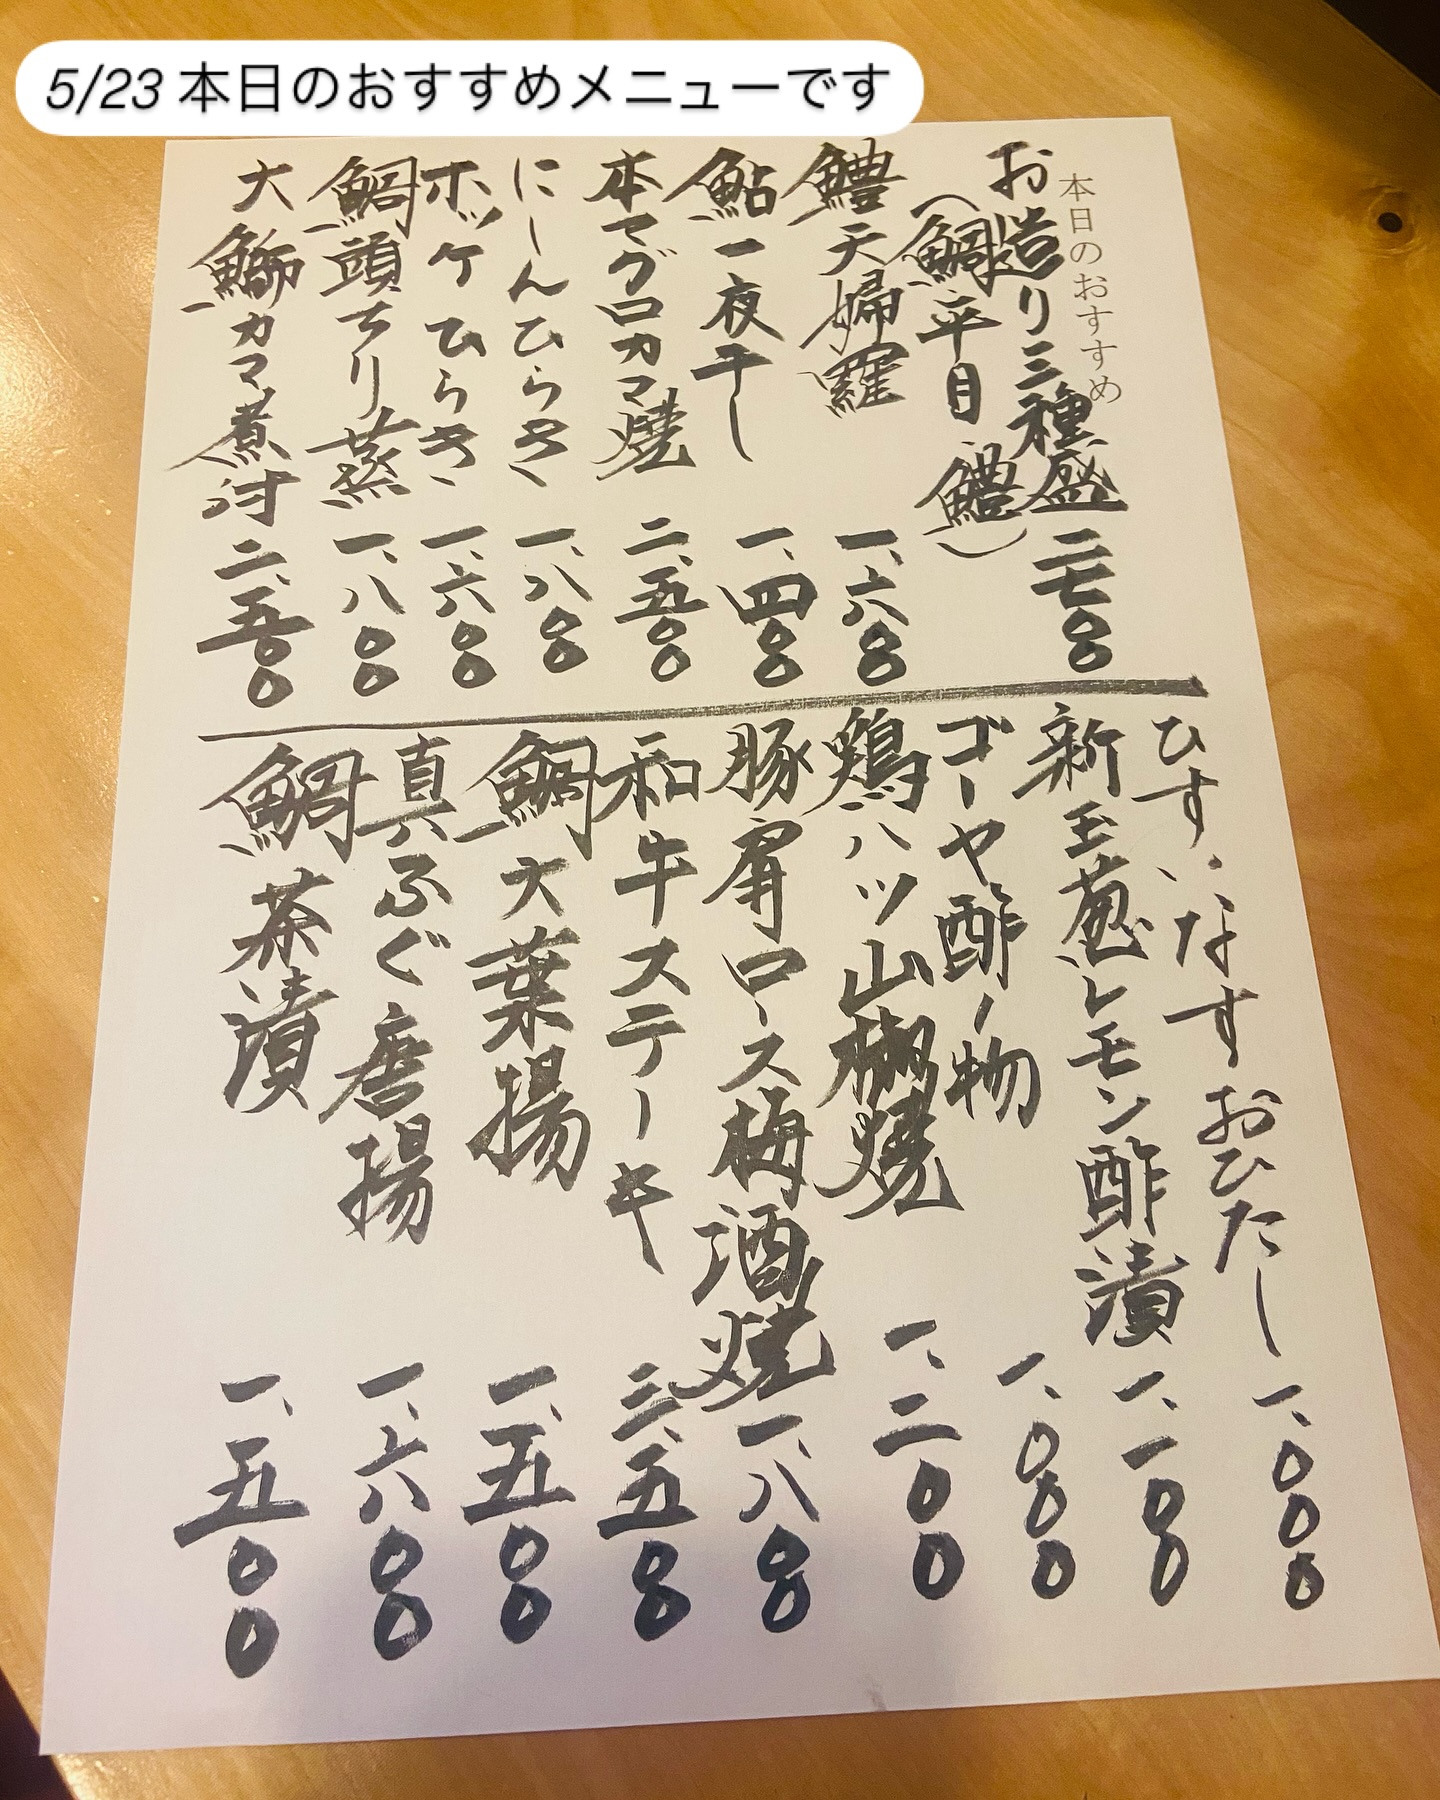 5/23 本日のおすすめメニューです
本日のおすすめ
お造り三種盛 二七〇〇
(鯛 平目 鱧)
鱧天婦羅 一、六〇〇
鮎一夜干し 一、四〇〇
本マグロカマ焼 二、五〇〇
にしんひらき 一、八〇〇
ホッケひらき 一、六〇〇
鯛頭ちり蒸 一、八〇〇
大鰤カマ煮付 二、五〇〇
ひすいなすおひたし 一、〇〇〇
新玉葱レモン酢漬 一、一〇〇
ゴーヤ酢ノ物 一、〇〇〇
鶏ハツ山椒焼 一、二〇〇
豚肩ロース梅酒焼 一、八〇〇
和牛ステーキ 三、五〇〇
鯛大葉揚 一、五〇〇
真ふぐ唐揚 一、六〇〇
鯛茶漬 一、五〇〇